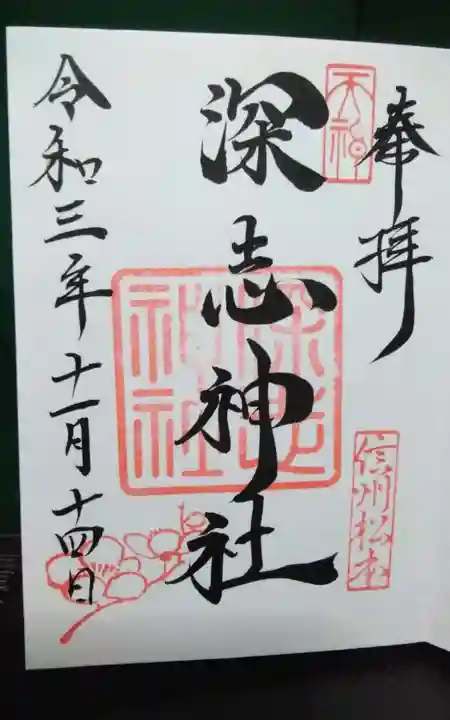 奉拝
天神
信州松本
深志神社
深志神社
令和三年十一月十四日